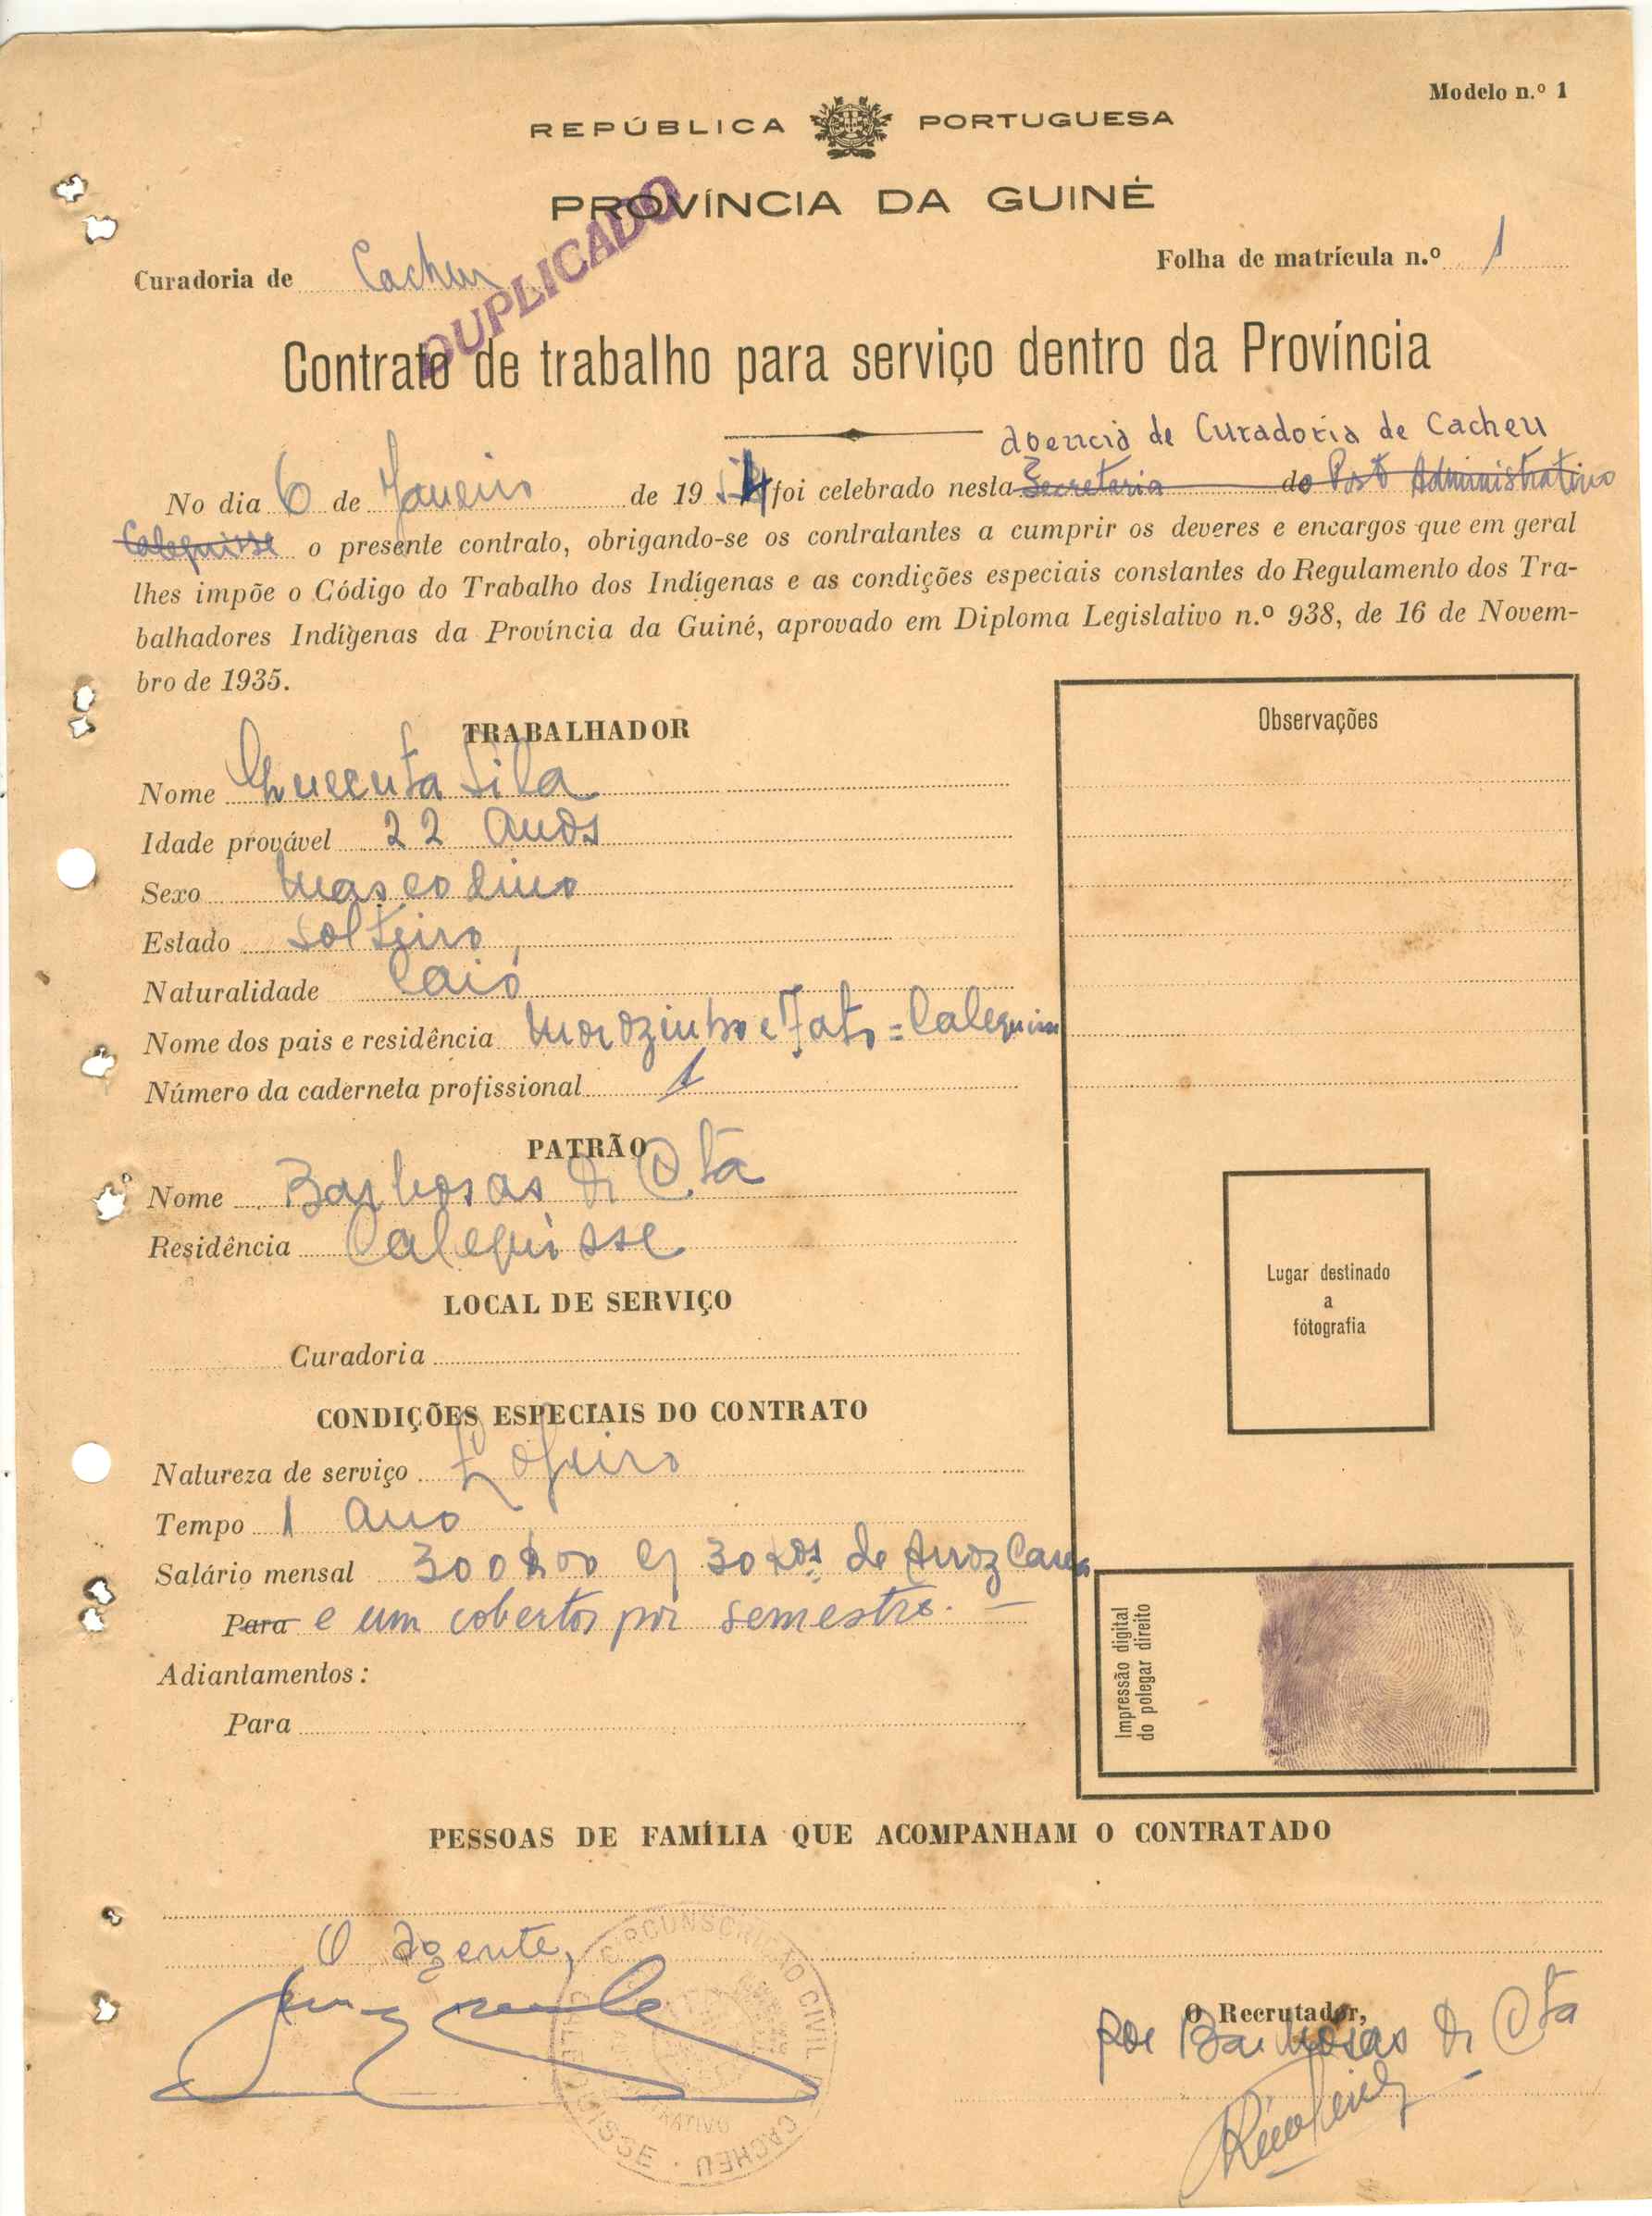 Modelo n.º 1
REPÚBLICA PORTUGUESA
PROVÍNCIA DA GUINÉ
DUPLICADO
Curadoria de Cacheu
Folha de matrícula n.º 1
Contrato de trabalho para serviço dentro da Província
agencia de Curadoria de Cacheu
No dia 6 de Janeiro de 1954 foi celebrado nesla Secretaria do Posto Administrativo
Calequisse o presente contrato, obrigando-se os contratantes a cumprir os deveres e encargos que em geral
lhes impõe o Código do Trabalho dos Indígenas e as condições especiais constantes do Regulamento dos Tra-
balhadores Indígenas da Província da Guiné, aprovado em Diploma Legislativo n.º 938, de 16 de Novem-
bro de 1935.
Observações
TRABALHADOR
Nome
Idade provável 22 anos
Sexo Mascolino
Estado Solteiro
Naturalidade Caió
Nome dos pais e residência e = Calequisse
Número da caderneta profissional 1
PATRÃO
Nome Barbosas & Cta
Residência Calequisse
Lugar destinado
a
fótografia
LOCAL DE SERVIÇO
Curadoria
CONDIÇÕES ESPECIAIS DO CONTRATO
Natureza de serviço
Tempo 1 ano
Salário mensal 300$00 e 30 de Arroz
Para e um cobertor por semestre.
Adiantamentos:
Para
Impressão digital
do polegar direito
PESSOAS DE FAMÍLIA QUE ACOMPANHAM O CONTRATADO
O agente,
CIRCUNSCRIÇÃO CIVIL CACHEU
CALEQUISSE
O Recrutador,
por Barbosas & Cta